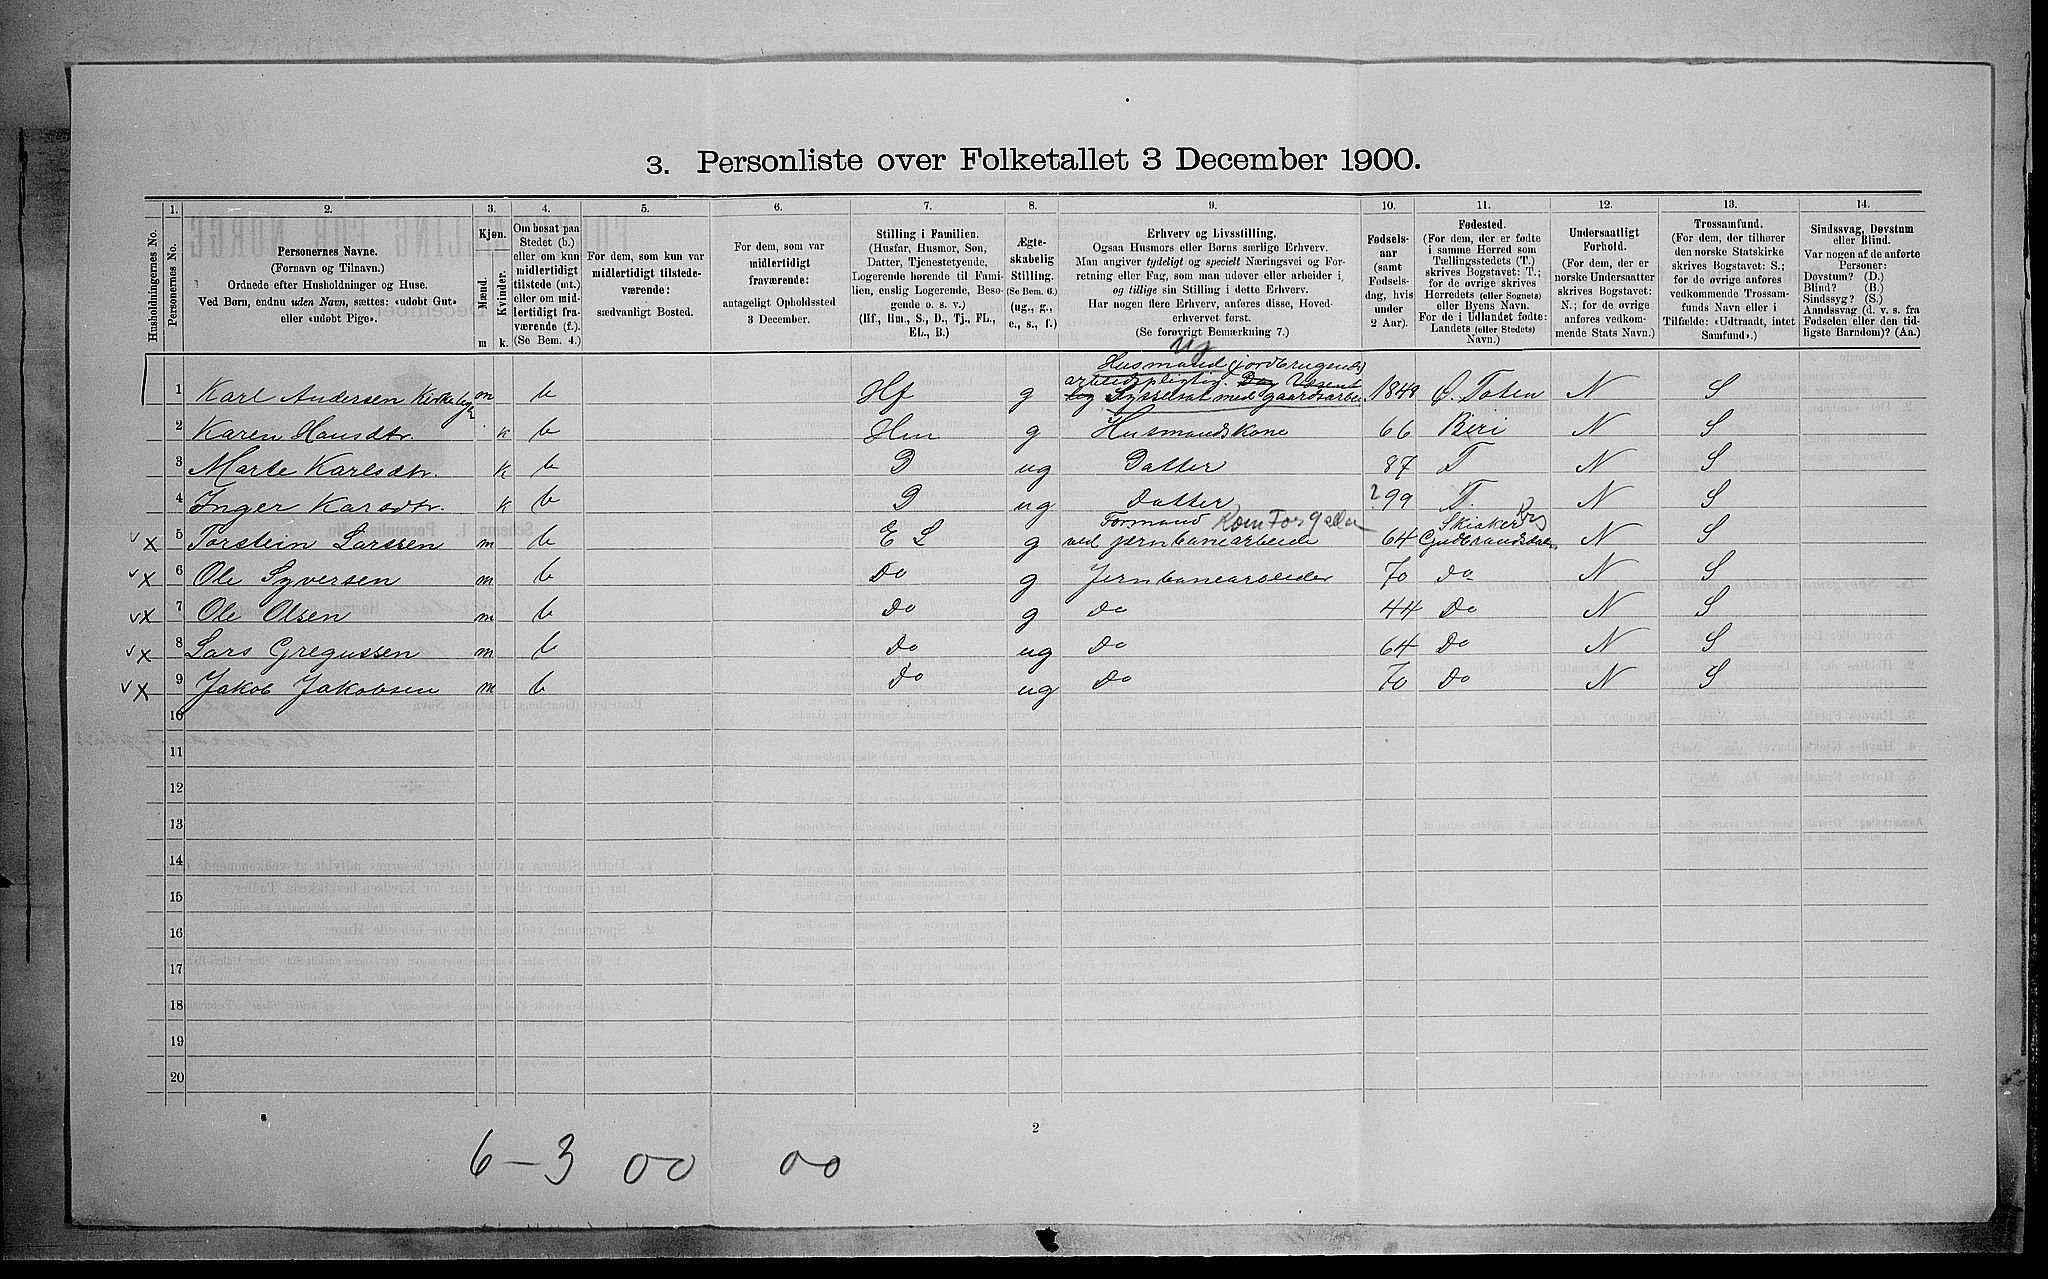 3. Personliste over Folketallet 3 December 1900.
1. 2. 3. 4. 5. 6. 7. 8. 9. 10. 11. 12. 13. 14.
Husholdningernes No.
Personernes No.
Personernes Navne.
(Fornavn og Tilnavn.)
Ordnede efter Husholdninger og Huse.
Ved Børn, endnu uden Navn, sættes: «udobt Gut»
eller «udobt Pige».
Kjøn.
Mænd.
Kvinder.
m k.
Om bosat paa
Stedet (b.)
eller om kun
midlertidigt
tilstede (mt.)
eller om mid-
lertidigt fra-
værende (f.).
(Se Bem. 4.)
For dem, som kun var
midlertidigt tilstede-
værende:
sædvanligt Bosted.
For dem, som var
midlertidigt
fraværende:
antageligt Opholdssted
3 December.
Stilling i Familien.
(Husfar, Husmor, Søn,
Datter, Tjenestetyende,
Logerende hørende til Fami-
lien, enslig Logerende, Besø-
gende o. s. v.)
(Hf., Hm., S., D., Tj., FL.,
EL., B.)
Ægte-
skabelig
Stilling.
(Se Bem. 6.)
(ug., g.,
e., s., f.)
Erhverv og Livsstilling.
Ogsaa Husmors eller Børns særlige Erhverv.
Man angiver tydeligt og specielt Næringsvei og For-
retning eller Fag, som man udøver eller arbeider i,
og tillige sin Stilling i dette Erhverv.
Har nogen flere Erhverv, anføres disse, Hoved-
erhvervet først.
(Se forøvrigt Bemærkning 7.)
Fødsels-
aar
(samt
Fødsels-
dag, hvis
under
2 Aar).
Fødested.
(For dem, der er fødte
i samme Herred som
Tællingsstedets (T.)
skrives Bogstavet: T.;
for de øvrige skrives
Herredets (eller Sognets)
eller Byens Navn.
For de i Udlandet fødte:
Landets (eller Stedets)
Navn.)
Undersaatligt
Forhold.
(For dem, der er
norske Undersaatter
skrives Bogstavet:
N.; for de øvrige
anføres vedkom-
mende Stats Navn.)
Trossamfund.
(For dem, der tilhører
den norske Statskirke
skrives Bogstavet: S.;
for de øvrige anføres
vedkommende Trossam-
funds Navn eller i
Tilfælde: «Udtraadt, intet
Samfund».)
Sindssvag, Døvstum
eller Blind.
Var nogen af de anførte
Personer:
Døvstum? (D.)
Blind? (B.)
Sindssyg? (S.)
Aandssvag (d. v. s. fra
Fødselen eller den tid-
ligste Barndom)? (Aa.)
Husmand (jordbrugende)
1 Karl Andersen m b Hf g arbeidspligtig.
og Sysselsat med gaardsarbei 1848 Ø. Toten N S
2 Karen Hansdtr. k b Hm g Husmandskone 66 Biri N S
3 Marte Karlsdtr. k b D ug Datter 87 T N S
4 Inger Karsdtr. k b D ug Datter 99 T. N S
Formand Skiaker
v x 5 Torstein Larssen m b E L g ved jernbanearbeide 64 Gudbrandsdalen N S
v x 6 Ole Syversen m b Do g Jernbanearbeider 70 do N S
v x 7 Ole Olsen m b do g do 44 Do N S
v x 8 Lars Gregussen m b Do ug Do 64 Do N S
v x 9 Jakob Jakobsen m b do ug Do 70 Do N S
10
11
12
13
14
15
16
17
18
19
20
2
6 – 3 00 00